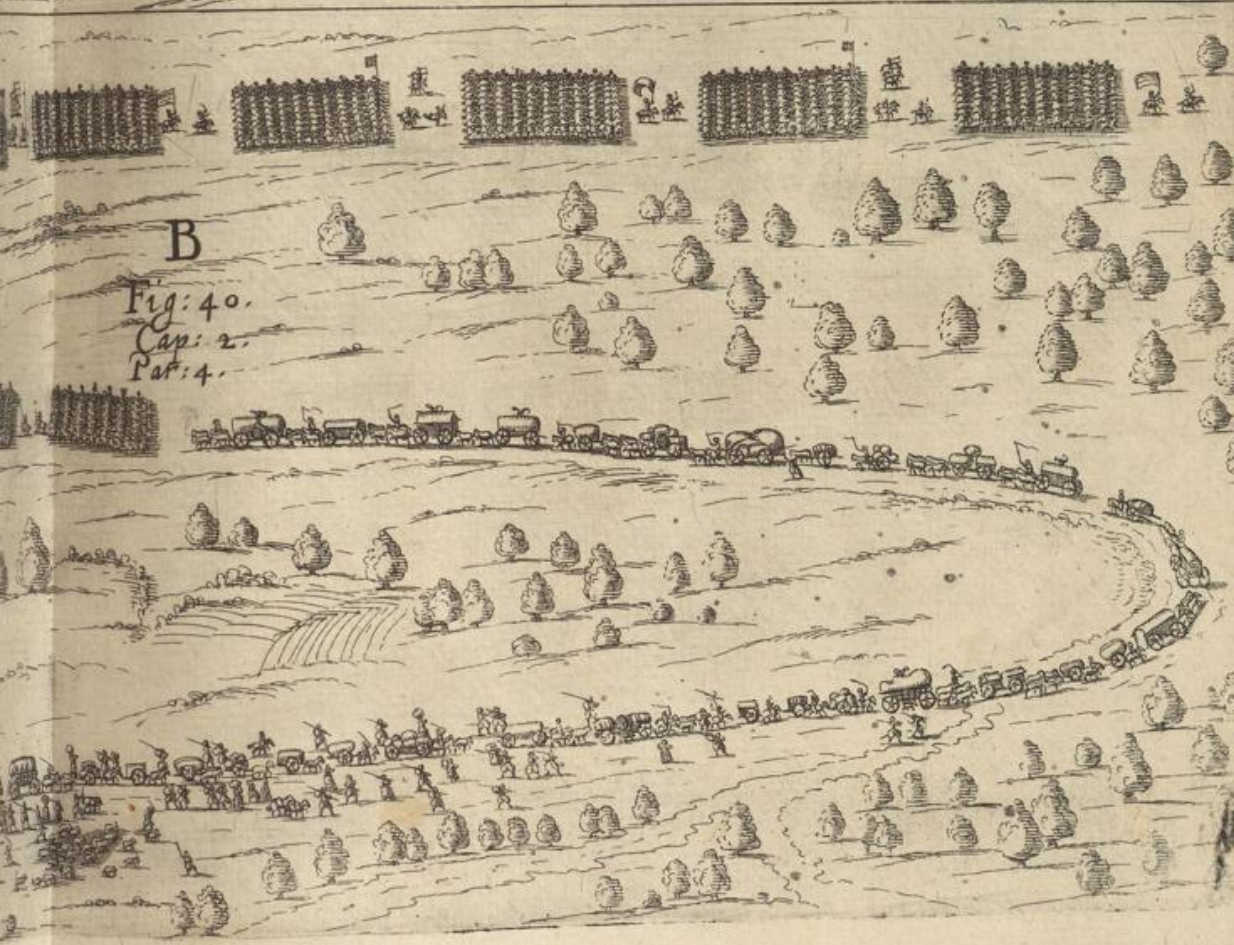 B
Fig: 40.
Cap: 2.
Par: 4.